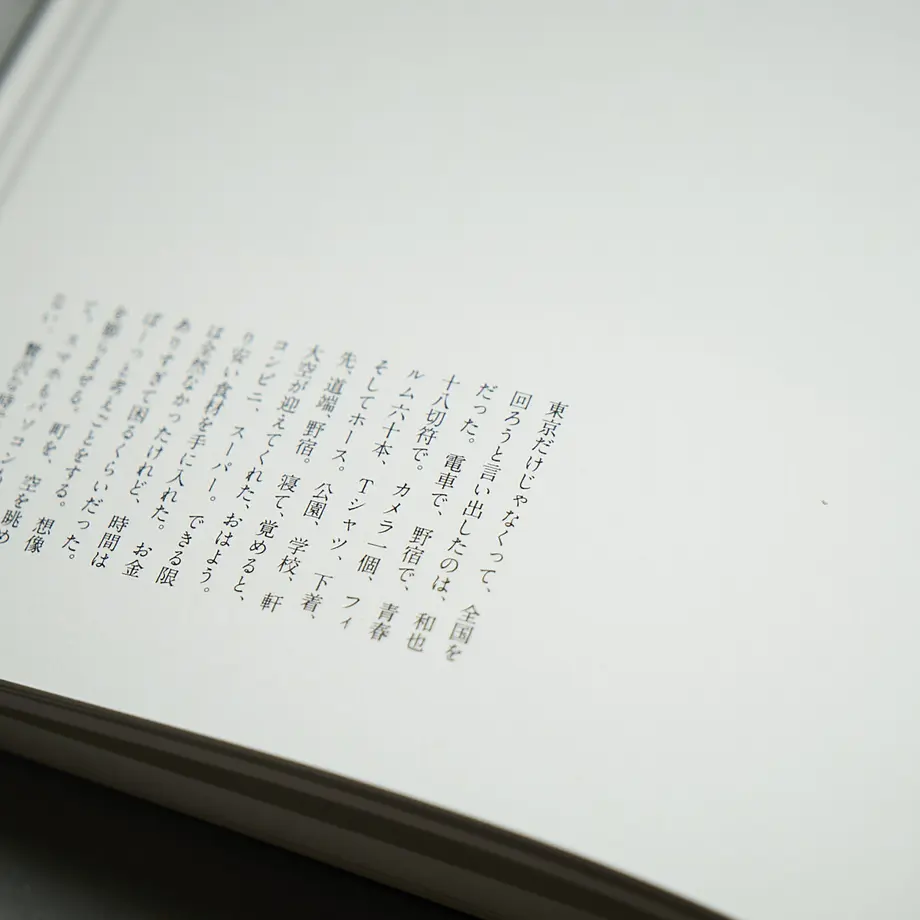 東京だけじゃなくって、全国を
回ろうと言い出したのは、和也
だった。電車で、野宿で、青春
十八切符で。カメラ一個、フィ
ルム六十本、Tシャツ、下着、
そしてホース。公園、学校、軒
先、道端、野宿。寝て、覚めると、
大空が迎えてくれた、おはよう。
コンビニ、スーパー。できる限
り安い食材を手に入れた。お金
は全然なかったけれど、時間は
ありすぎて困るくらいだった。
ぼーっと考えごとをする。想像
を膨らませる。町を、空を眺め
て、スマホもパソコンも
贅沢な時